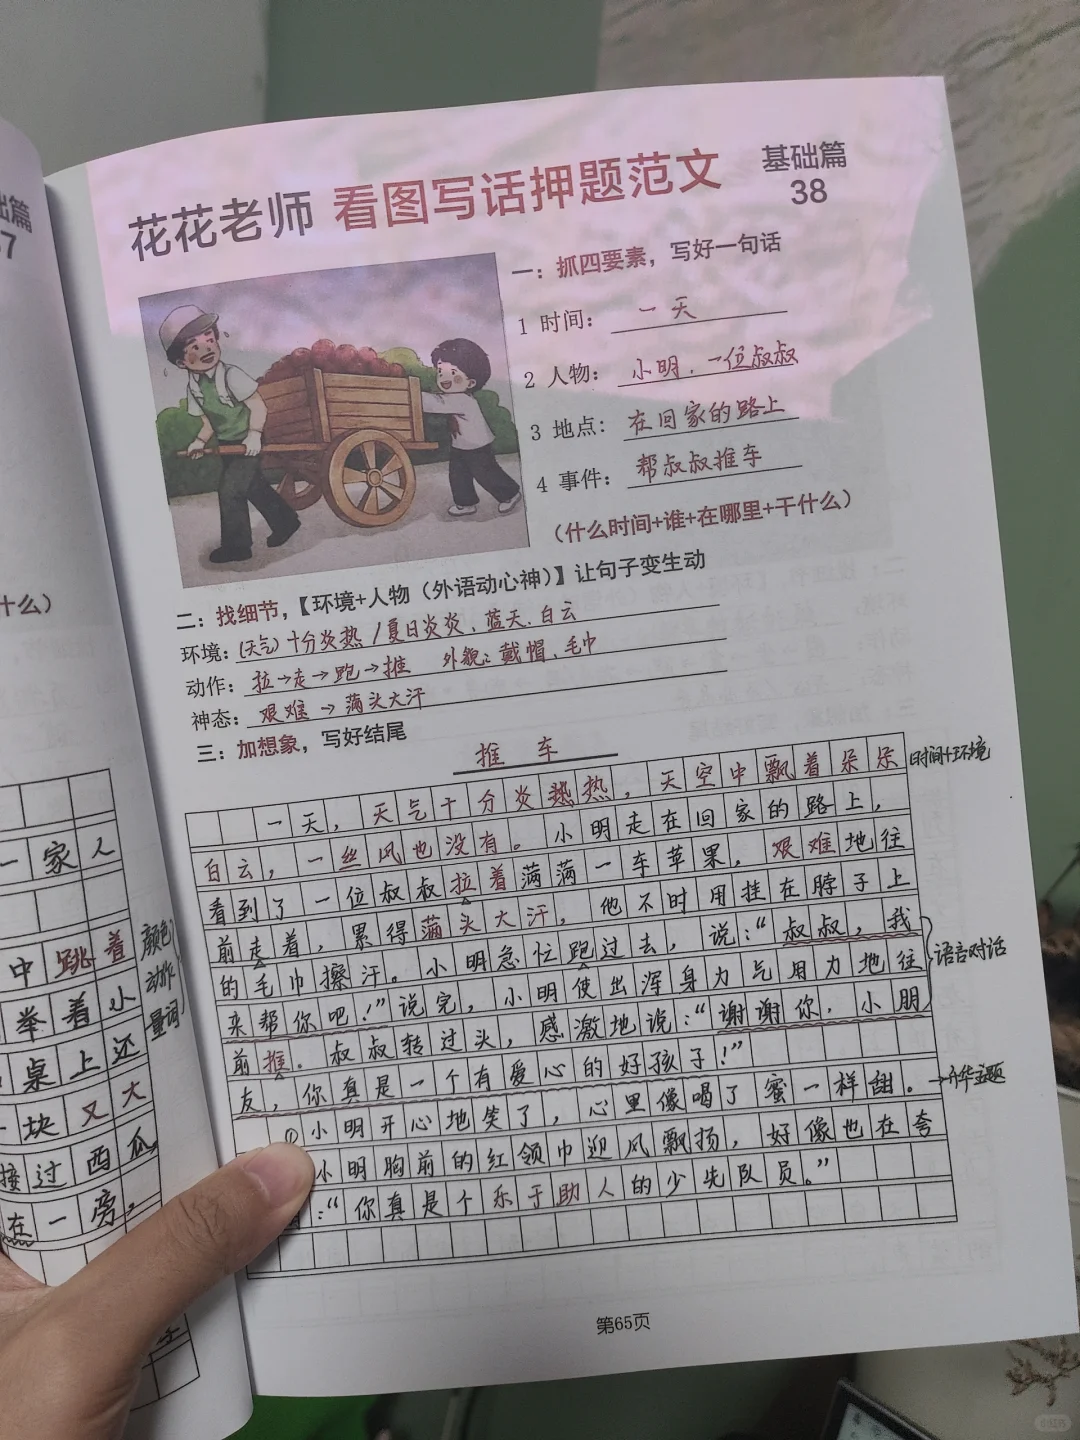 花花老师 看图写话押题范文 基础篇
38
一：抓四要素，写好一句话
1 时间：一天
2 人物：小明，一位叔叔
3 地点：在回家的路上
4 事件：帮叔叔推车
（什么时间+谁+在哪里+干什么）
二：找细节，【环境+人物（外语动心神）】让句子变生动
环境：（天气）十分炎热/夏日炎炎、蓝天、白云
动作：拉→走→跑→推 外貌：戴帽、毛巾
神态：艰难→满头大汗
三：加想象，写好结尾
推车
一天，天气十分炎热热，天空中飘着朵朵
时间+环境
白云，一丝风也没有。小明走在回家的路上，
看到了一位叔叔拉着满满一车苹果，艰难地往
前走着，累得满头大汗，他不时用挂在脖子上
的毛巾擦汗。小明急忙跑过去，说：“叔叔，我
来帮你吧！”说完，小明使出浑身力气用力地往
语言对话
前推。叔叔转过头，感激地说：“谢谢你，小朋
友，你真是一个有爱心的好孩子！”
①小明开心地笑了，心里像喝了蜜一样甜。
→升华主题
小明胸前的红领巾迎风飘扬，好像也在夸
：“你真是个乐于助人的少先队员。”
第65页
础篇
什么）
一家人
中跳着
举着小
桌上还
块又大
接过西瓜
在一旁，
颜色
动作
量词